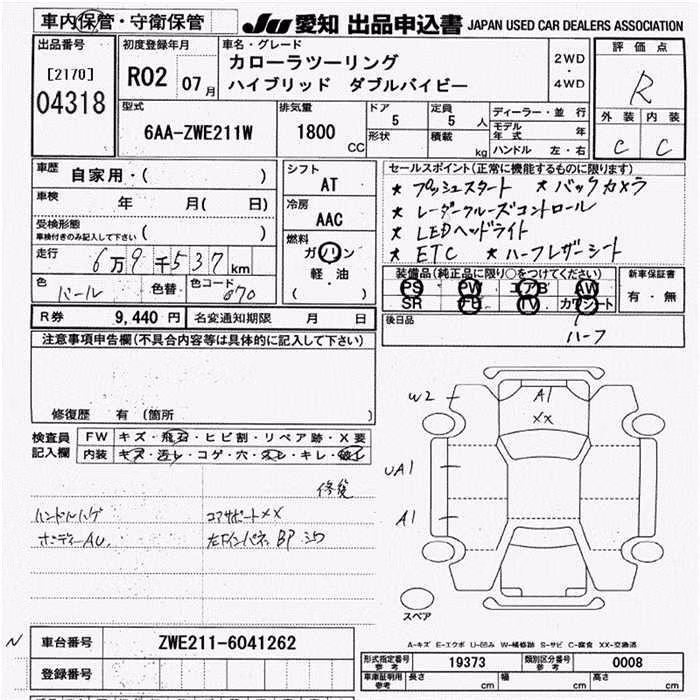 車内保管・守衛保管
JU 愛知 出品申込書 JAPAN USED CAR DEALERS ASSOCIATION
出品番号
[2170]
04318
初度登録年月
R02 07月
車名・グレード
カローラツーリング
ハイブリッド ダブルバイビー
2WD
・
4WD
評価点
R
外装 内装
C C
型式
6AA-ZWE211W
排気量
1800 CC
ドア
5
形状
定員
5 人
積載
kg
ディーラー・並行
モデル年式 年
ハンドル 左・右
車歴
自家用・( )
車検
年 月( 日)
受検形態
車検付きのみ記入して下さい ( )
走行
6万9千537km
色
パール 色替 色コード 070
シフト
AT
冷房
AAC
燃料
ガソリン
軽・油
( )
セールスポイント(正常に機能するものに限ります)
★ プッシュスタート ★ バックカメラ
★ レーダークルーズコントロール
★ LEDヘッドライト
★ ETC ★ ハーフレザーシート
装備品(純正品に限り○をつけてください)
PS PW エアB AW
SR TV カワシート
ハーフ
新車保証書
有・無
後日品
R券 9,440 円 名変通知期限 月 日
注意事項申告欄(不具合内容等は具体的に記入して下さい)
修復歴 有(箇所 )
検査員記入欄
FW キズ・飛石・ヒビ割・リペア跡・X要
内装 キズ・汚レ・コゲ・穴・スレ・キレ・破レ
修発
ハンドルハゲ コアサポートXX
ボディーAU. 左Fインパネ BP
W2
A1
XX
UA1
A1
スペア
A-キズ E-エクボ U-凹み W-補修跡 S-サビ C-腐食 XX-交換済
N
車台番号 ZWE211-6041262
登録番号
形式指定番号 参考 19373 類別区分番号 参考 0008
車庫証明用 参考 長さ cm 幅 cm 高さ cm